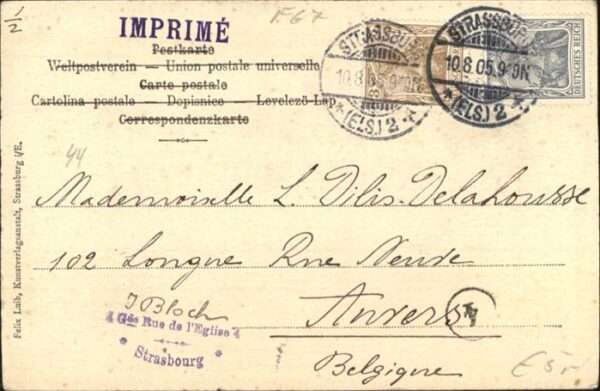 1/2
IMPRIMÉ
F67
Postkarte
Weltpostverein – Union postale universelle
Carte postale
Cartolina postale – Dopisnice – Levelező-Lap
Correspondenzkarte
STRASSBURG
10.8.05.9-
*(ELS.) 2
STRASSBURG
10.8.05.9-
*(ELS.) 2
DEUTSCHES REICH
44
Mademoiselle L. Dilis-Delahousse
102 Longue Rue Neuve
Anvers
Belgique
J Bloch
4 Gde Rue de l'Eglise 4
Strasbourg
Felix Luib, Kunstverlagsanstalt, Strassburg i/E.